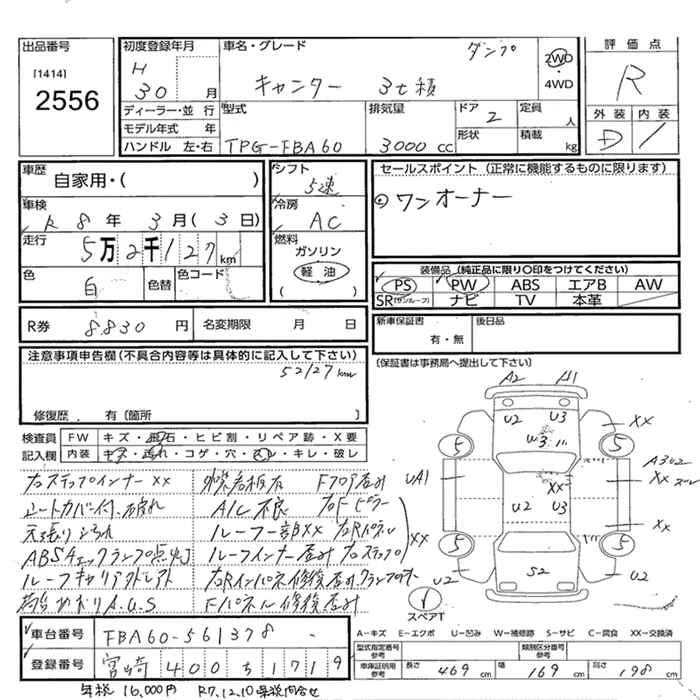 出品番号
[1414]
2556
初度登録年月
H
30 月
車名・グレード
ダンプ
キャンター 3t積
2WD
・
4WD
評価点
R
ディーラー・並行
モデル年式 年
ハンドル 左・右
型式
TPG-FBA60
排気量
3000 cc
ドア
2
形状
定員
人
積載
kg
外装 内装
D
車歴
自家用・( )
車検
R 8 年 3 月 (3 日)
走行
5万2千127km
色
白
色替
色コード
シフト
5速
冷房
AC
燃料
ガソリン
軽油
( )
セールスポイント (正常に機能するものに限ります)
ワンオーナー
装備品 (純正品に限り○印をつけてください)
PS PW ABS エアB AW
SR(サンルーフ) ナビ TV 本革
R券 8830 円 名変期限 月 日
新車保証書
有・無
後日品
(保証書は事務局へ提出して下さい)
注意事項申告欄(不具合内容等は具体的に記入して下さい)
52127km
修復歴 有〔箇所 〕
検査員 FW キズ・飛石・ヒビ割・リペア跡・X要
記入欄 内装 キズ・汚れ・コゲ・穴・スレ・キレ・破レ
右ステップインナーXX
シートカバー付、破れ
ABSチェックランプ点灯
A/C不良
ルーフ一部XX 右Rパネル
ルーフインナー歪み 右ステップ
XX
Fパネル修復歪み
A2 A1
U2 U3
W3
XX
5 5
UA1
XX
U2 U3
XX
XX
5 5
U2
S2
U2
スペアT
A-キズ E-エクボ U-凹み W-補修跡 S-サビ C-腐食 XX-交換済
車台番号 FBA60-561378
登録番号 宮崎 400 ち 1719
型式指定番号
参考
類別区分番号
参考
車庫証明用
参考
長さ 469 cm 幅 169 cm 高さ 198 cm
年税 16,000円 R7.12.10 県税問合せ